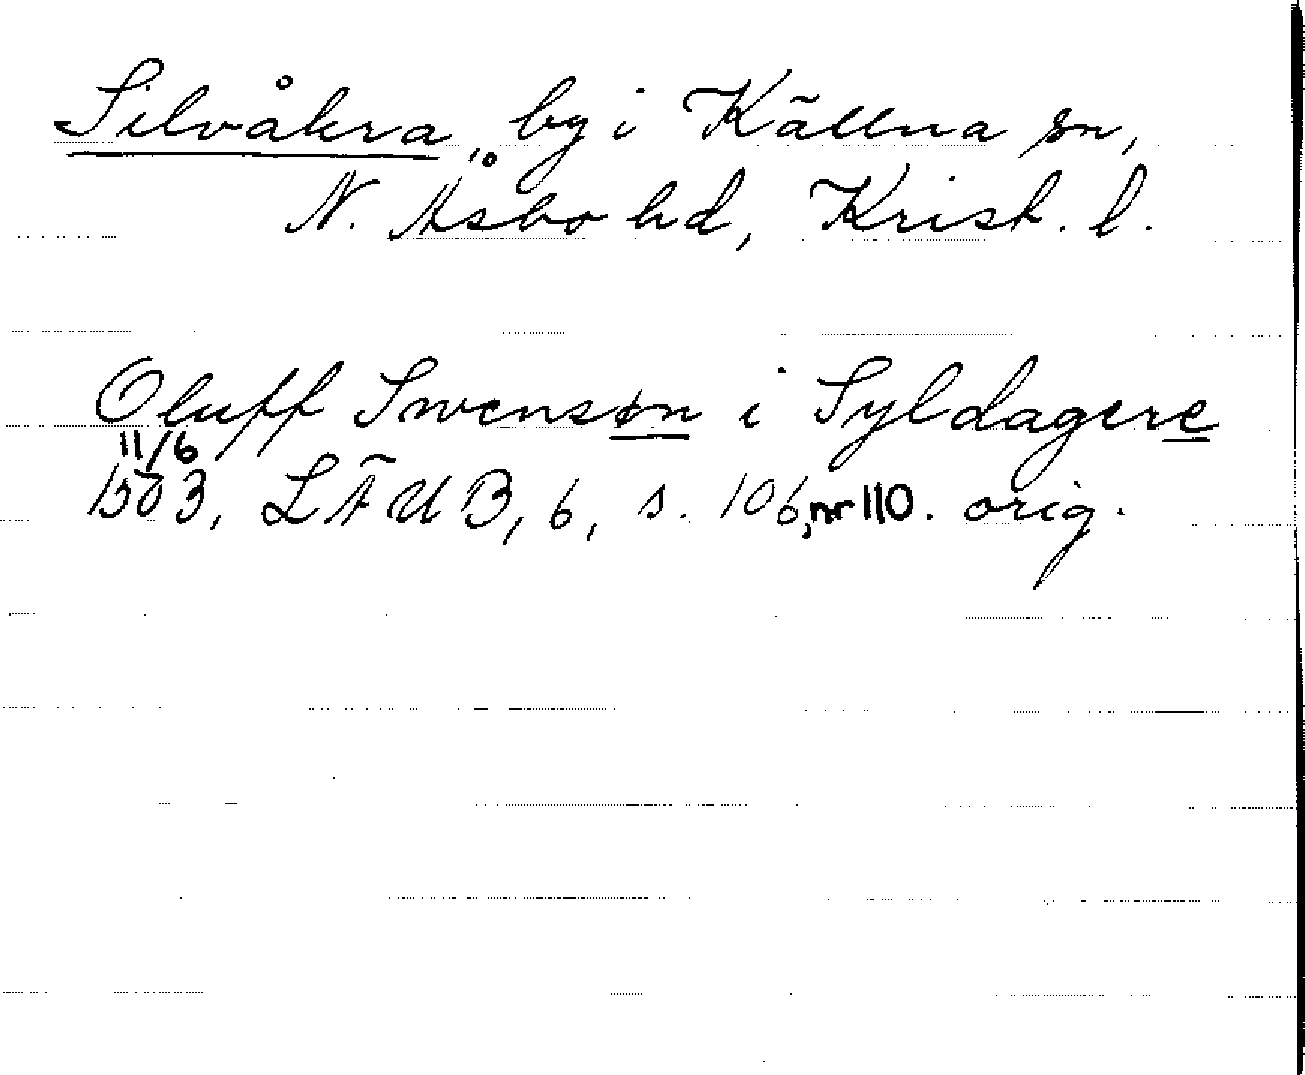 Silvåkra, by i Källna sn,
N. Åsbo hd, Krist. l.
Oluff Swensøn i Syldagere
11/6
1503, LÄUB, 6, s. 106, nr 110. orig.